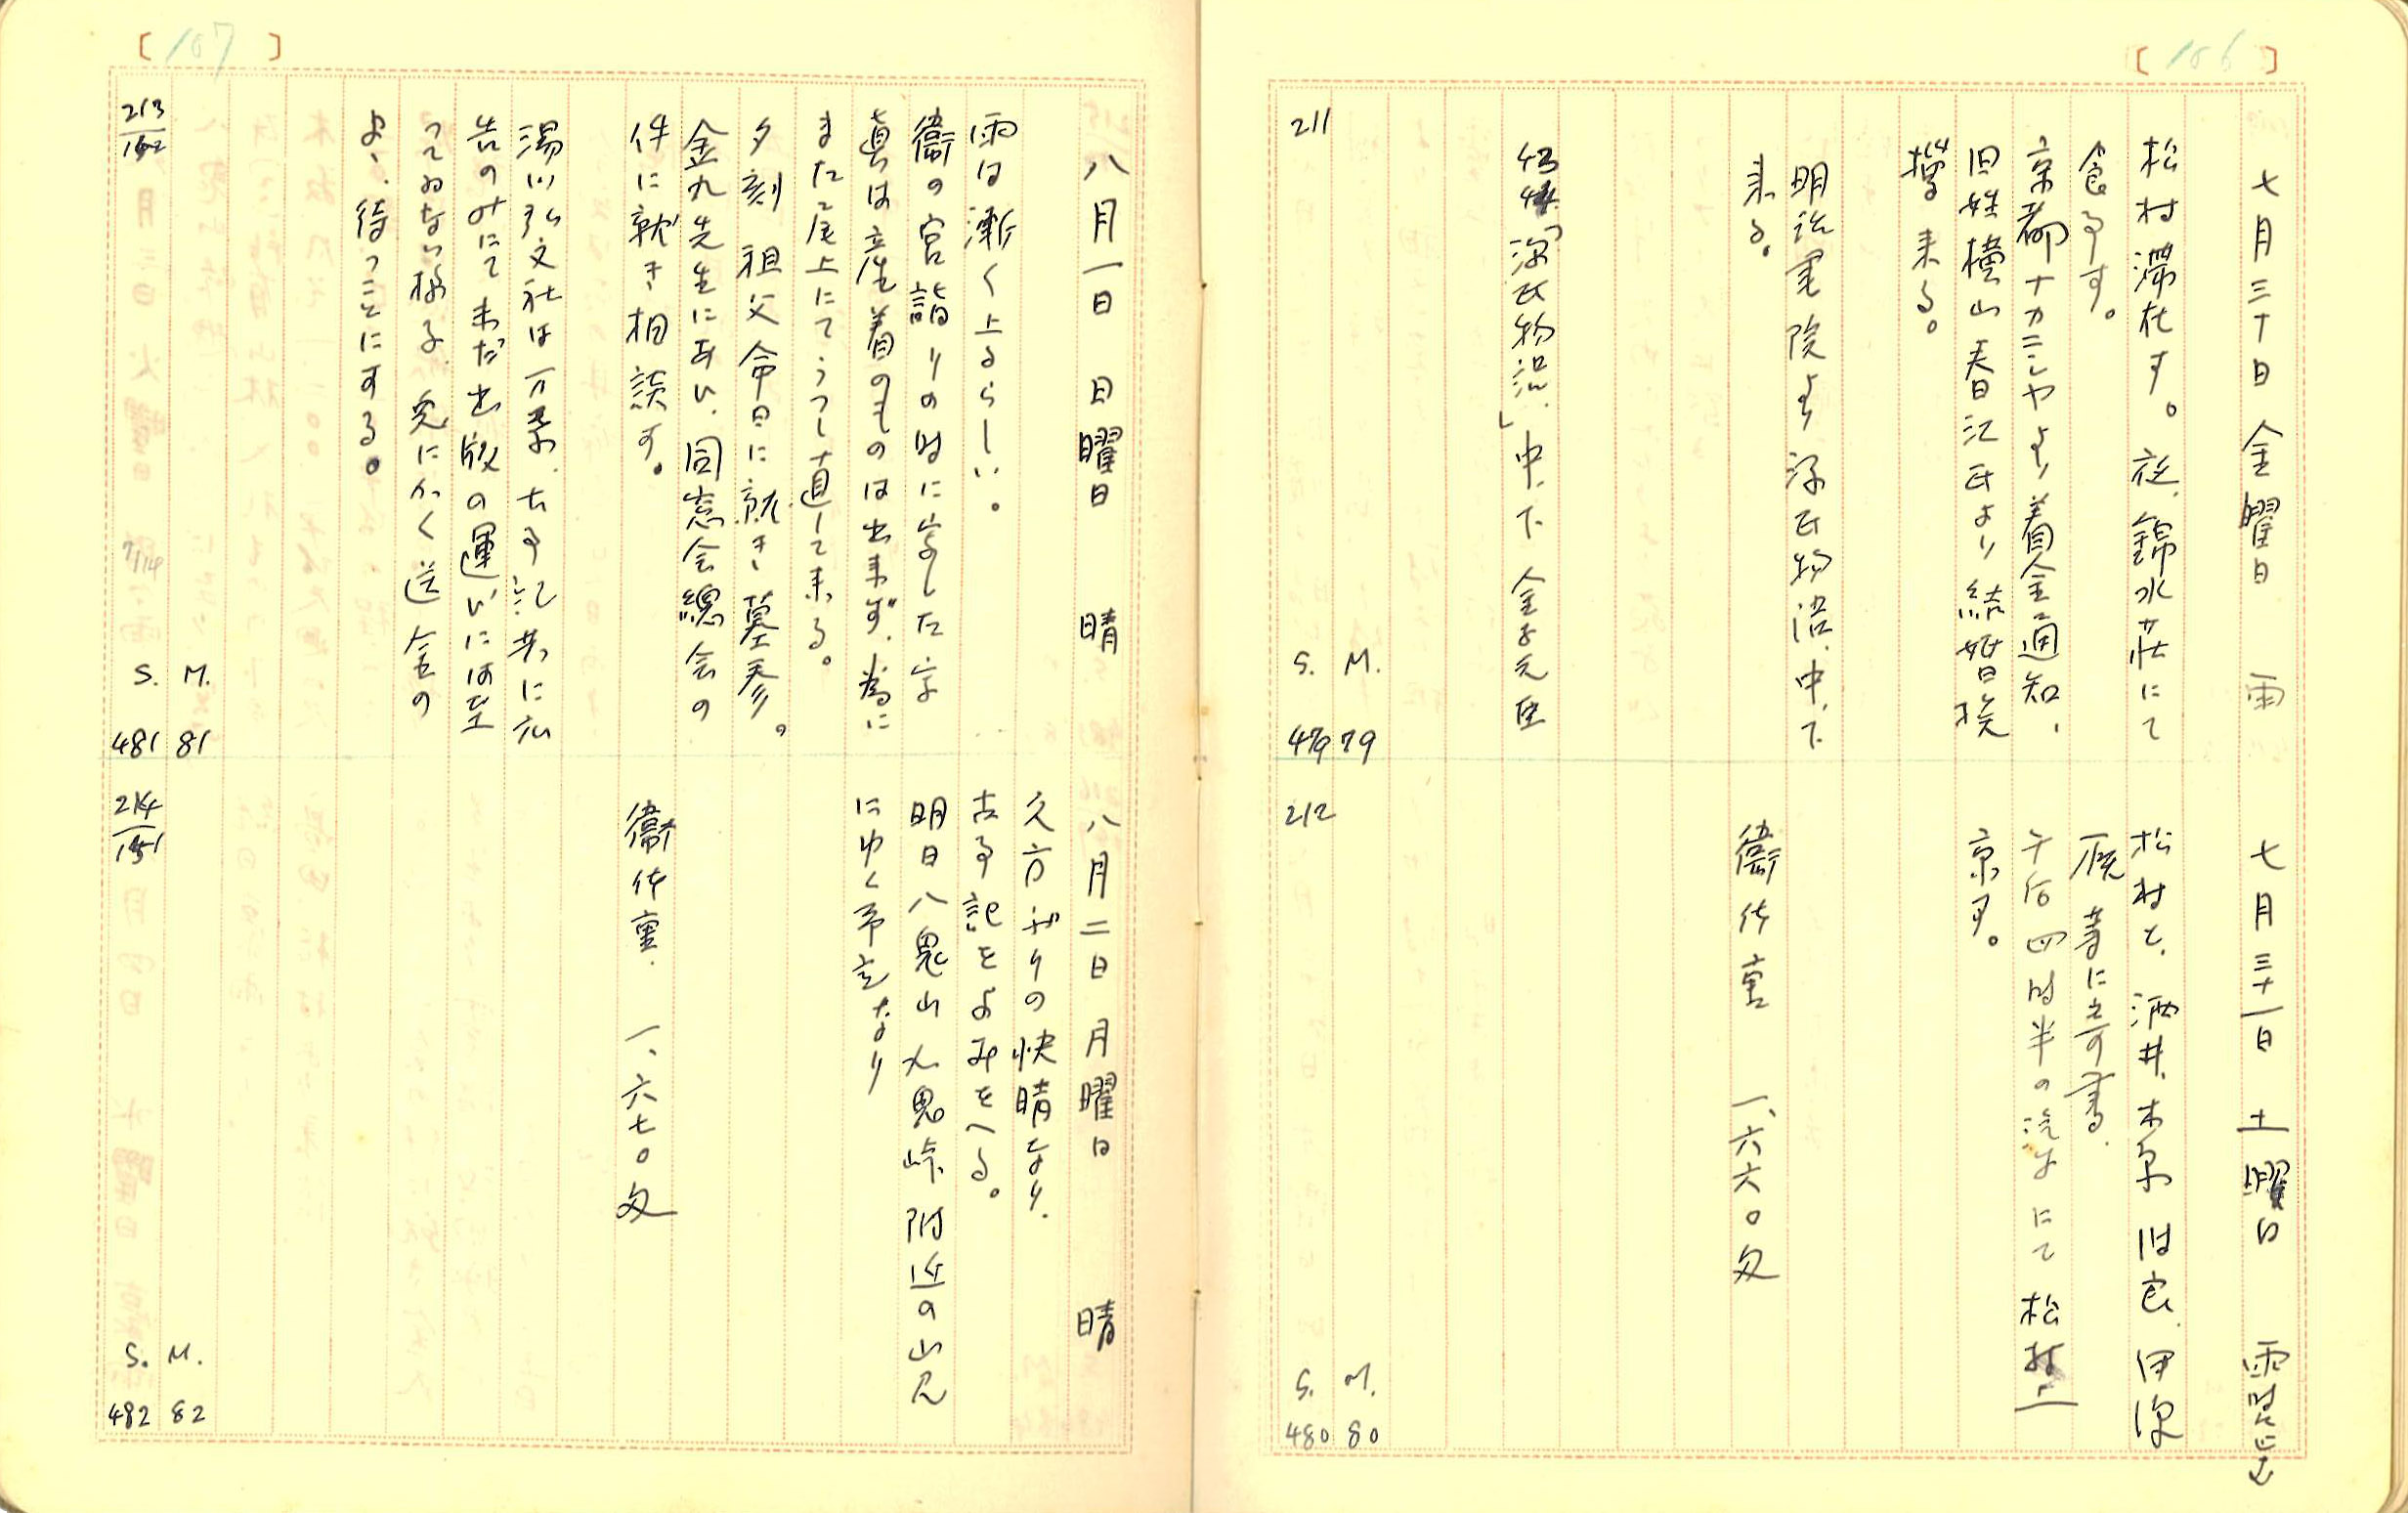 [106]
七月三十日 金曜日 雨
松村滞在す。夜、錦水荘にて
食事す。
京都ナカニシヤより着金通知、
旧姓横山春江氏より結婚挨
拶来る。
明治書院より源氏物語、中、下
来る。
43
44.「源氏物語」中、下 金子元臣
211
S. M.
479 79
七月三十一日 土曜日 雨時に止む
松村と、酒井、木原
午后四時半の汽車にて松村上
京す。
衞体重 一、六六〇匁
212
S. M.
480 80
[107]
八月一日 日曜日 晴
雨は漸く上るらしい。
衞の宮詣りの時に写した写
眞は産着のものは出来ず、為に
また尾上にてうつし直して来る。
夕刻 祖父命日に就き墓参。
金丸先生にあい、同窓会總会の
件に就き相談す。
湯川弘文社は万葉、古事記共に広
告のみにて未だ出版の運びには至
つてゐない様子、兎にかく送金の
上、待つことにする。
213
152
S. M.
481 81
八月二日 月曜日 晴
久方ぶりの快晴なり。
古事記をよみをへる。
明日八鬼山九鬼峠附近の山見
にゆく予定なり
衞体重、 一、六七〇匁
214
151
S. M.
482 82